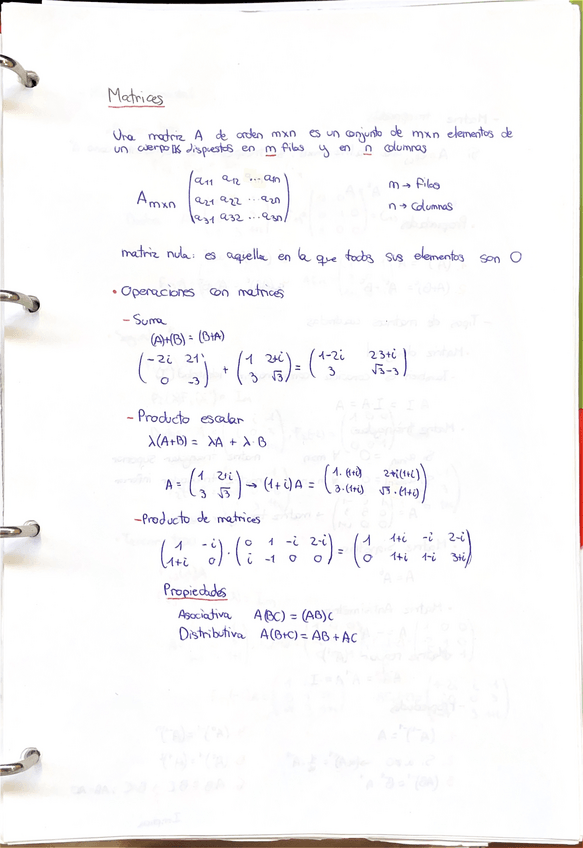 Matrices
Una matriz A de orden m×n es un conjunto de m×n elementos de
un cuerpo K dispuestos en m filas y en n columnas
A m×n (a11 a12 ... a1n
a21 a22 ... a2n
a31 a32 ... a3n)
m → filas
n → columnas
matriz nula: es aquella en la que todos sus elementos son 0
• Operaciones con matrices
- Suma
(A)+(B) = (B+A)
(-2i 21
0 -3) + (1 2+i
3 √3) = (1-2i 23+i
3 √3-3)
- Producto escalar
λ(A+B) = λA + λ·B
A = (1 2+i
3 √3) → (1+i)A = (1·(1+i) 2+i(1+i)
3·(1+i) √3·(1+i))
- Producto de matrices
(1 -i
1+i 0) · (0 1 -i 2-i
i -1 0 0) = (1 1+i -i 2-i
0 1+i 1-i 3+i)
Propiedades
Asociativa A(BC) = (AB)C
Distributiva A(B+C) = AB + AC